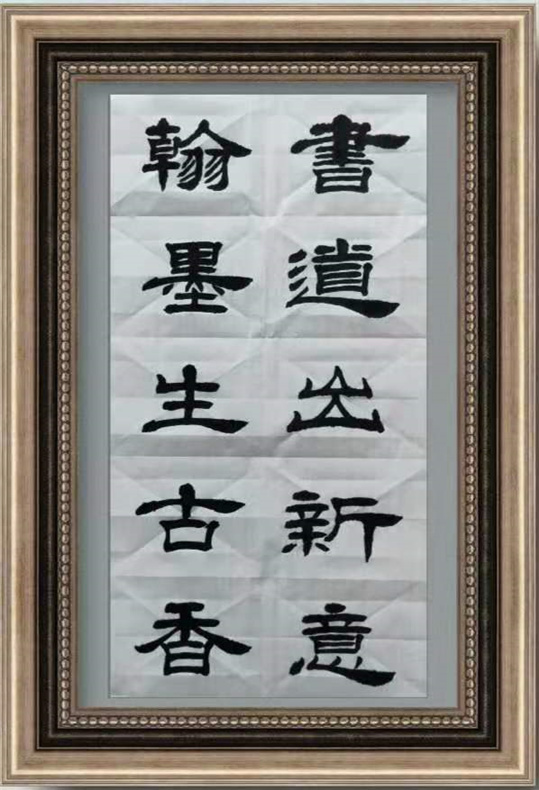 書道出新意
翰墨生古香